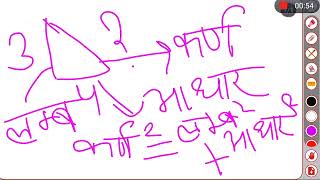 00:54
3 ? कर्ण
लम्ब 4 आधार
कर्ण² = लम्ब²
+ आधार²